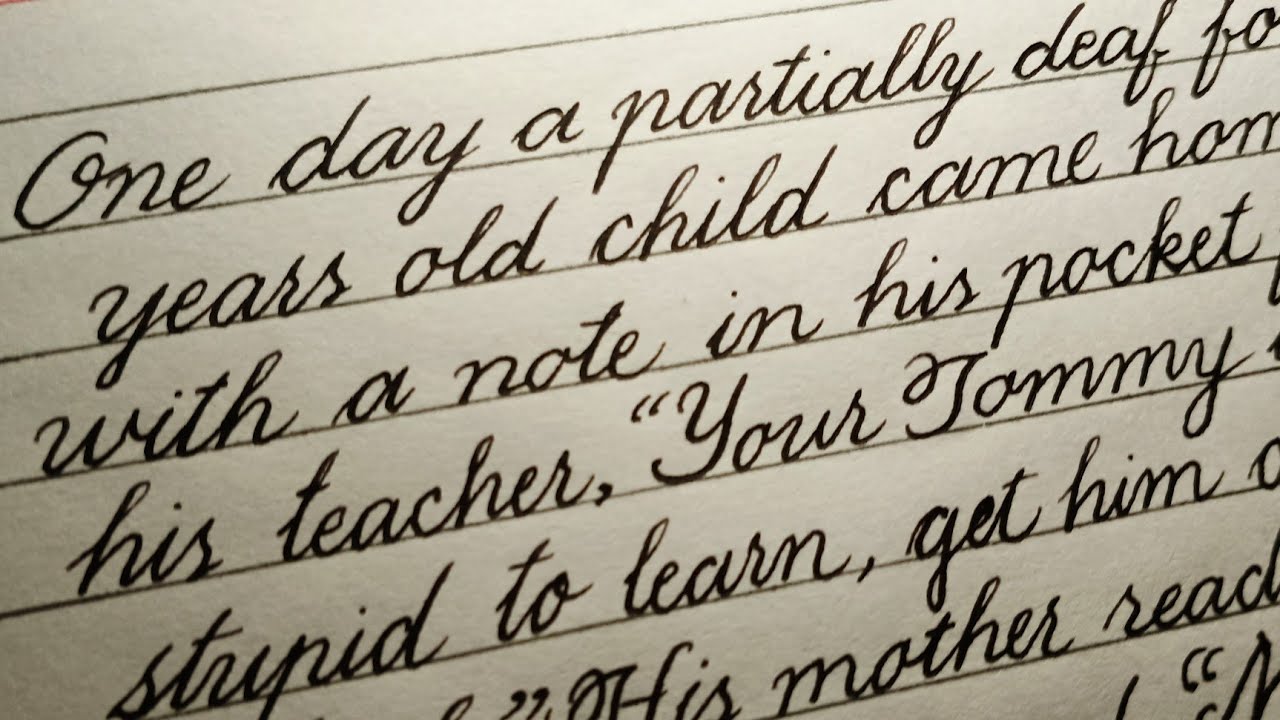 One day a partially deaf
years old child came
with a note in his pocket
his teacher, "Your Tommy
stupid to learn, get him
" His mother read
"